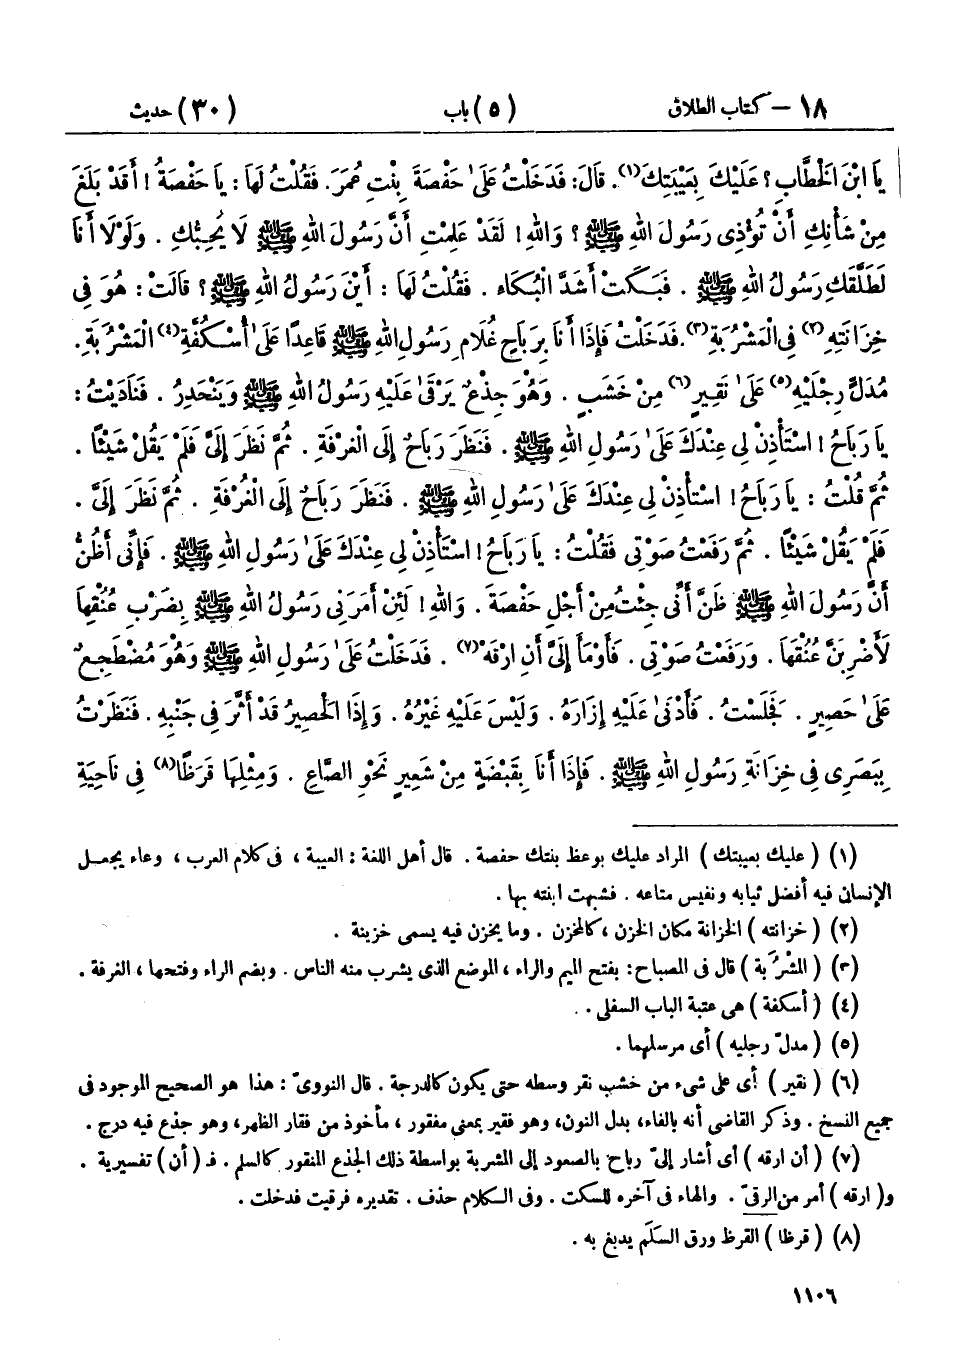 ١٨ – كتاب الطلاق (٥) باب (٣٠) حديث
يَا ابْنَ الْخَطَّابِ؟ عَلَيْكَ بِعَيْبَتِكَ(١). قَالَ: فَدَخَلْتُ عَلَىٰ حَفْصَةَ بِنْتِ عُمَرَ. فَقُلْتُ لَهَا: يَا حَفْصَةُ! أَقَدْ بَلَغَ
مِنْ شَأْنِكِ أَنْ تُؤْذِي رَسُولَ اللهِ ﷺ؟ وَاللهِ! لَقَدْ عَلِمْتِ أَنَّ رَسُولَ اللهِ ﷺ لَا يُحِبُّكِ. وَلَوْلَا أَنَا
لَطَلَّقَكِ رَسُولُ اللهِ ﷺ. فَبَكَتْ أَشَدَّ الْبُكَاءِ. فَقُلْتُ لَهَا: أَيْنَ رَسُولُ اللهِ ﷺ؟ قَالَتْ: هُوَ فِي
خِزَانَتِهِ(٢) فِي الْمَشْرُبَةِ(٣). فَدَخَلْتُ فَإِذَا أَنَا بِرَبَاحٍ غُلَامِ رَسُولِ اللهِ ﷺ قَاعِدًا عَلَىٰ أُسْكُفَّةِ(٤) الْمَشْرُبَةِ.
مُدَلٍّ رِجْلَيْهِ(٥) عَلَىٰ نَقِيرٍ(٦) مِنْ خَشَبٍ. وَهُوَ جِذْعٌ يَرْقَىٰ عَلَيْهِ رَسُولُ اللهِ ﷺ وَيَنْحَدِرُ. فَنَادَيْتُ:
يَا رَبَاحُ! اسْتَأْذِنْ لِي عِنْدَكَ عَلَىٰ رَسُولِ اللهِ ﷺ. فَنَظَرَ رَبَاحٌ إِلَى الْغُرْفَةِ. ثُمَّ نَظَرَ إِلَيَّ فَلَمْ يَقُلْ شَيْئًا.
ثُمَّ قُلْتُ: يَا رَبَاحُ! اسْتَأْذِنْ لِي عِنْدَكَ عَلَىٰ رَسُولِ اللهِ ﷺ. فَنَظَرَ رَبَاحٌ إِلَى الْغُرْفَةِ. ثُمَّ نَظَرَ إِلَيَّ.
فَلَمْ يَقُلْ شَيْئًا. ثُمَّ رَفَعْتُ صَوْتِي فَقُلْتُ: يَا رَبَاحُ! اسْتَأْذِنْ لِي عِنْدَكَ عَلَىٰ رَسُولِ اللهِ ﷺ. فَإِنِّي أَظُنُّ
أَنَّ رَسُولَ اللهِ ﷺ ظَنَّ أَنِّي جِئْتُ مِنْ أَجْلِ حَفْصَةَ. وَاللهِ! لَئِنْ أَمَرَنِي رَسُولُ اللهِ ﷺ بِضَرْبِ عُنُقِهَا
لَأَضْرِبَنَّ عُنُقَهَا. وَرَفَعْتُ صَوْتِي. فَأَوْمَأَ إِلَيَّ أَنِ ارْقَهْ(٧). فَدَخَلْتُ عَلَىٰ رَسُولِ اللهِ ﷺ وَهُوَ مُضْطَجِعٌ
عَلَىٰ حَصِيرٍ. فَجَلَسْتُ. فَأَدْنَىٰ عَلَيْهِ إِزَارَهُ. وَلَيْسَ عَلَيْهِ غَيْرُهُ. وَإِذَا الْحَصِيرُ قَدْ أَثَّرَ فِي جَنْبِهِ. فَنَظَرْتُ
بِبَصَرِي فِي خِزَانَةِ رَسُولِ اللهِ ﷺ. فَإِذَا أَنَا بِقَبْضَةٍ مِنْ شَعِيرٍ نَحْوِ الصَّاعِ. وَمِثْلِهَا قَرَظًا(٨) فِي نَاحِيَةِ
(١) (عليك بعيبتك) المراد عليك بوعظ بنتك حفصة. قال أهل اللغة: العيبة، فى كلام العرب، وعاء يجعل
الإنسان فيه أفضل ثيابه ونفيس متاعه. فشبهت ابنته بها.
(٢) (خزانته) الخزانة مكان الخزن، كالمخزن. وما يخزن فيه يسمى خزينة.
(٣) (المشرُبة) قال فى المصباح: بفتح الميم والراء، الموضع الذى يشرب منه الناس. وبضم الراء وفتحها، الغرفة.
(٤) (أسكفة) هى عتبة الباب السفلى.
(٥) (مدلّ رجليه) أى مرسلهما.
(٦) (نقير) أى على شىء من خشب نقر وسطه حتى يكون كالدرجة. قال النووىّ: هذا هو الصحيح الموجود فى
جميع النسخ. وذكر القاضى أنه بالفاء، بدل النون، وهو فقير بمعنى مفقور، مأخوذ من فقار الظهر، وهو جذع فيه درج.
(٧) (أن ارقه) أى أشار إلىّ رباح بالصعود إلى المشربة بواسطة ذلك الجذع المنقور كالسلم. فـ (أن) تفسيرية.
و(ارقه) أمر من الرقىّ. والهاء فى آخره للسكت. وفى الكلام حذف. تقديره فرقيت فدخلت.
(٨) (قرظا) القرظ ورق السَلَم يدبغ به.
١١٠٦